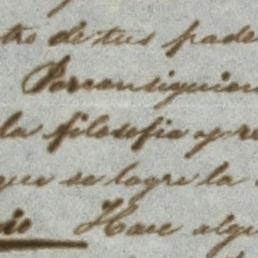 tro de tus pade
Porconsiguien
la filosofia y re
que se logre la
io Hace algu